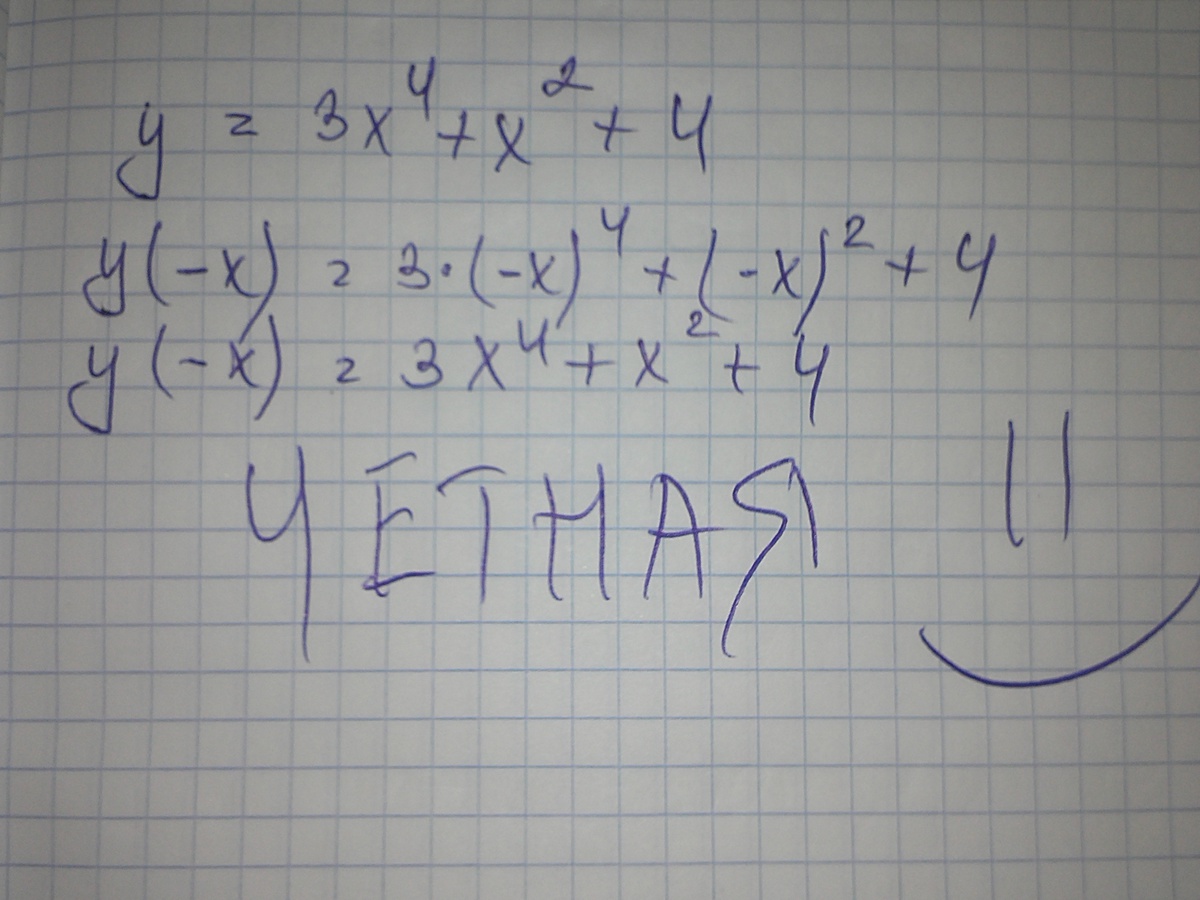 y = 3x⁴ + x² + 4
y(-x) = 3·(-x)⁴ + (-x)² + 4
y(-x) = 3x⁴ + x² + 4
ЧЕТНАЯ